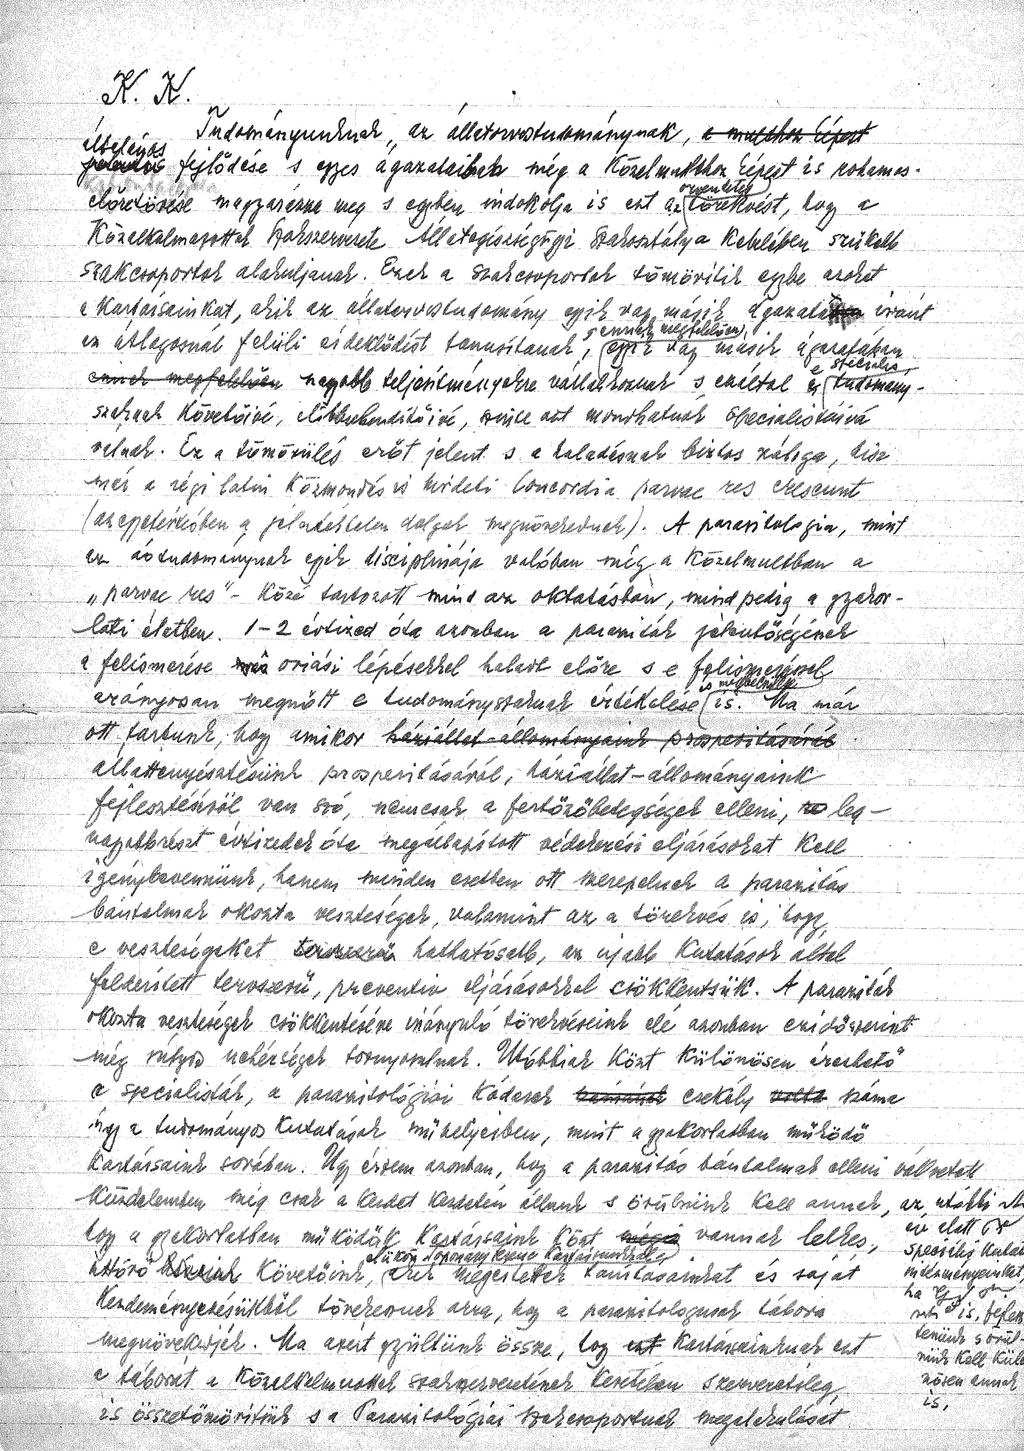 K. K.
Tudományunknak, az állatorvostudománynak, a multhoz képest
általános
jelentős fejlődése s egyes ágazataiban még a közelmulthoz képest is rohamos
előretörése magyarázza meg s egyben indokolja is ezt az örvendetes törekvést, hogy a
Közalkalmazottak Szakszervezete Állategészségügyi Szakosztálya keblében szűkebb
szakcsoportok alakuljanak. Ezek a szakcsoportok tömörítik egybe azokat
a Kartársainkat, akik az állatorvostudomány egyik vagy másik ágazata iránt
az átlagosnál felüli érdeklődést tanusítanak, s ennek megfelelően, egyik vagy másik ágazatában
ennek megfelelően nagyobb teljesítményekre vállalkoznak s ezáltal e speciális tudomány-
szaknak követőivé, előbbrelendítőivé, szinte azt mondhatnók specialistáivá
válnak. Ez a tömörülés erőt jelent s a haladásnak biztos záloga, hisz
már a régi latin közmondás is hirdeti Concordia parvae res crescunt
(az egyetértésben a jelentéktelen dolgok megnövekednek). A parasitologia, mint
az ótudománynak egyik disciplinája valóban még a közelmultban a
„parvae res"- közé tartozott mind az oktatásban, mind pedig a gyakor-
lati életben. 1-2 évtized óta azonban a paraziták jelentőségének
a felismerése óriási lépésekkel haladt előre s e felismeréssel
arányosan megnőtt e tudományszaknak értékelése is megbecsülése is. Ma már
ott tartunk, hogy amikor háziállat-állományaink prosperitásáról
állattenyésztésünk prosperitásáról, háziállat-állományaink
fejlesztéséről van szó, nemcsak a fertőzőbetegségek elleni, leg-
nagyobbrészt évtizedek óta megállapított védekezési eljárásokat kell
igénybevennünk, hanem minden esetben ott szerepelnek a parazitás
bántalmak okozta veszteségek, valamint az a törekvés is, hogy
e veszteségeket tervszerű hathatósabb, az ujabb kutatások által
felderített tervszerű, preventiv eljárásokkal csökkentsük. A paraziták
okozta veszteségek csökkentésére irányuló törekvéseink elé azonban ezidőszerint
még súlyos nehézségek tornyosulnak. Utóbbiak közt különösen érezhető
a specialisták, a parazitológiai káderek számának csekély volta száma
úgy a tudományos kutatások műhelyeiben, mint a gyakorlatban működő
kartársaink sorában. Ugy érzem azonban, hogy a parazitás bántalmak elleni vállvetett
küzdelemben még csak a kezdet kezdetén állunk s örülnünk kell annak,
hogy a gyakorlatban működők Kartársaink közt mégis vannak lelkes,
úttörő követőink, akik megértették tanításainkat és saját
kezdeményezésükből törekszenek arra, hogy a parazitologusok tábora
megnövekedjék. Ma azért gyűltünk össze, hogy ezt Kartársainknak ezt
a táborát a Közalkalmazottak szakszervezetének keretében szervezetileg
is összetömörítsük s a Parazitológiai Szakcsoportnak megalakulását
az utóbbi
év alatt
speciális kutat
intézményeinket,
ha
is, fejlesz-
tenünk s örül-
nünk kell külö-
nösen annak
is,